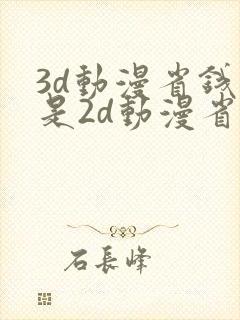 3d動漫省錢
是2d動漫省
石長峰